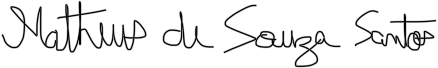 Matheus de Souza Santos